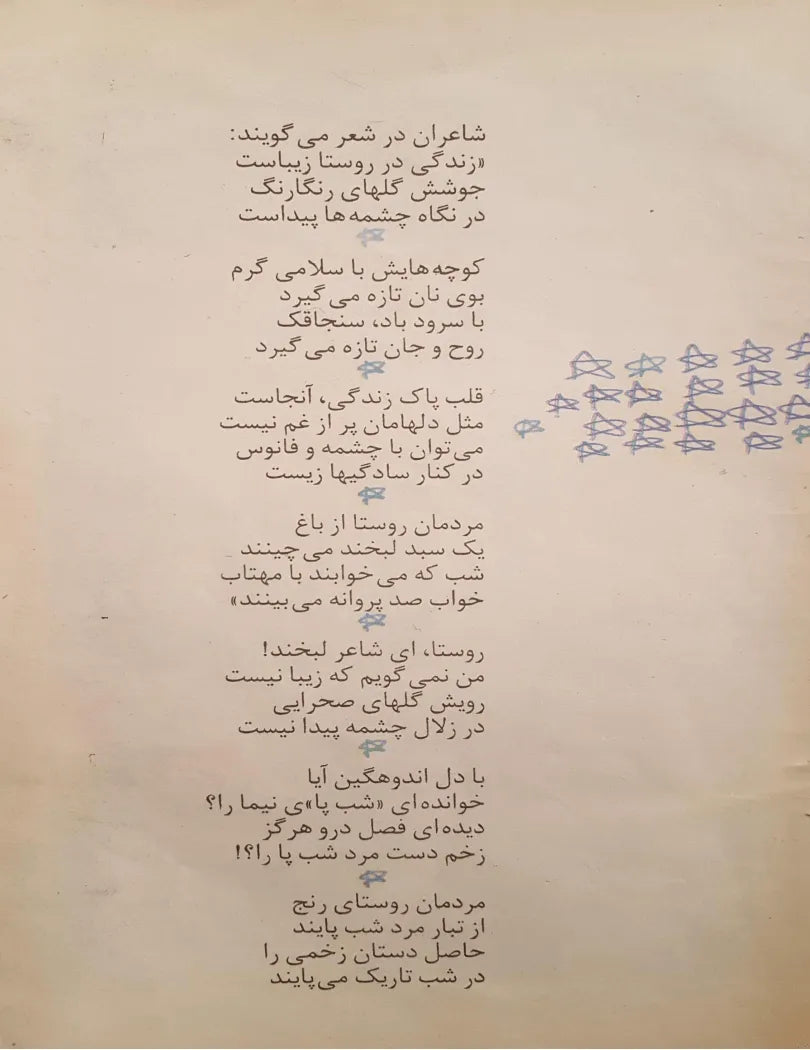 شاعران در شعر می گویند:
«زندگی در روستا زیباست
جوشش گلهای رنگارنگ
در نگاه چشمه‌ها پیداست
کوچه‌هایش با سلامی گرم
بوی نان تازه می گیرد
با سرود باد، سنجاقک
روح و جان تازه می گیرد
قلب پاک زندگی، آنجاست
مثل دلهامان پر از غم نیست
می‌توان با چشمه و فانوس
در کنار سادگیها زیست
مردمان روستا از باغ
یک سبد لبخند می‌چینند
شب که می‌خوابند با مهتاب
خواب صد پروانه می‌بینند»
روستا، ای شاعر لبخند!
من نمی گویم که زیبا نیست
رویش گلهای صحرایی
در زلال چشمه پیدا نیست
با دل اندوهگین آیا
خوانده‌ای «شب پا»ی نیما را؟
دیده‌ای فصل درو هرگز
زخم دست مرد شب پا را؟!
مردمان روستای رنج
از تبار مرد شب پایند
حاصل دستان زخمی را
در شب تاریک می‌پایند